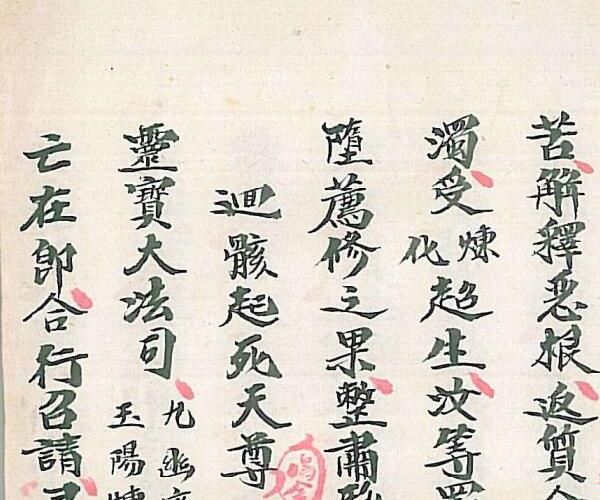 苦解釋惡根返質
濁受煉化超生汝等
墮薦修之果整肅
迴骸起死天尊
靈寶大法司九幽玉陽
亡在郎合行召請